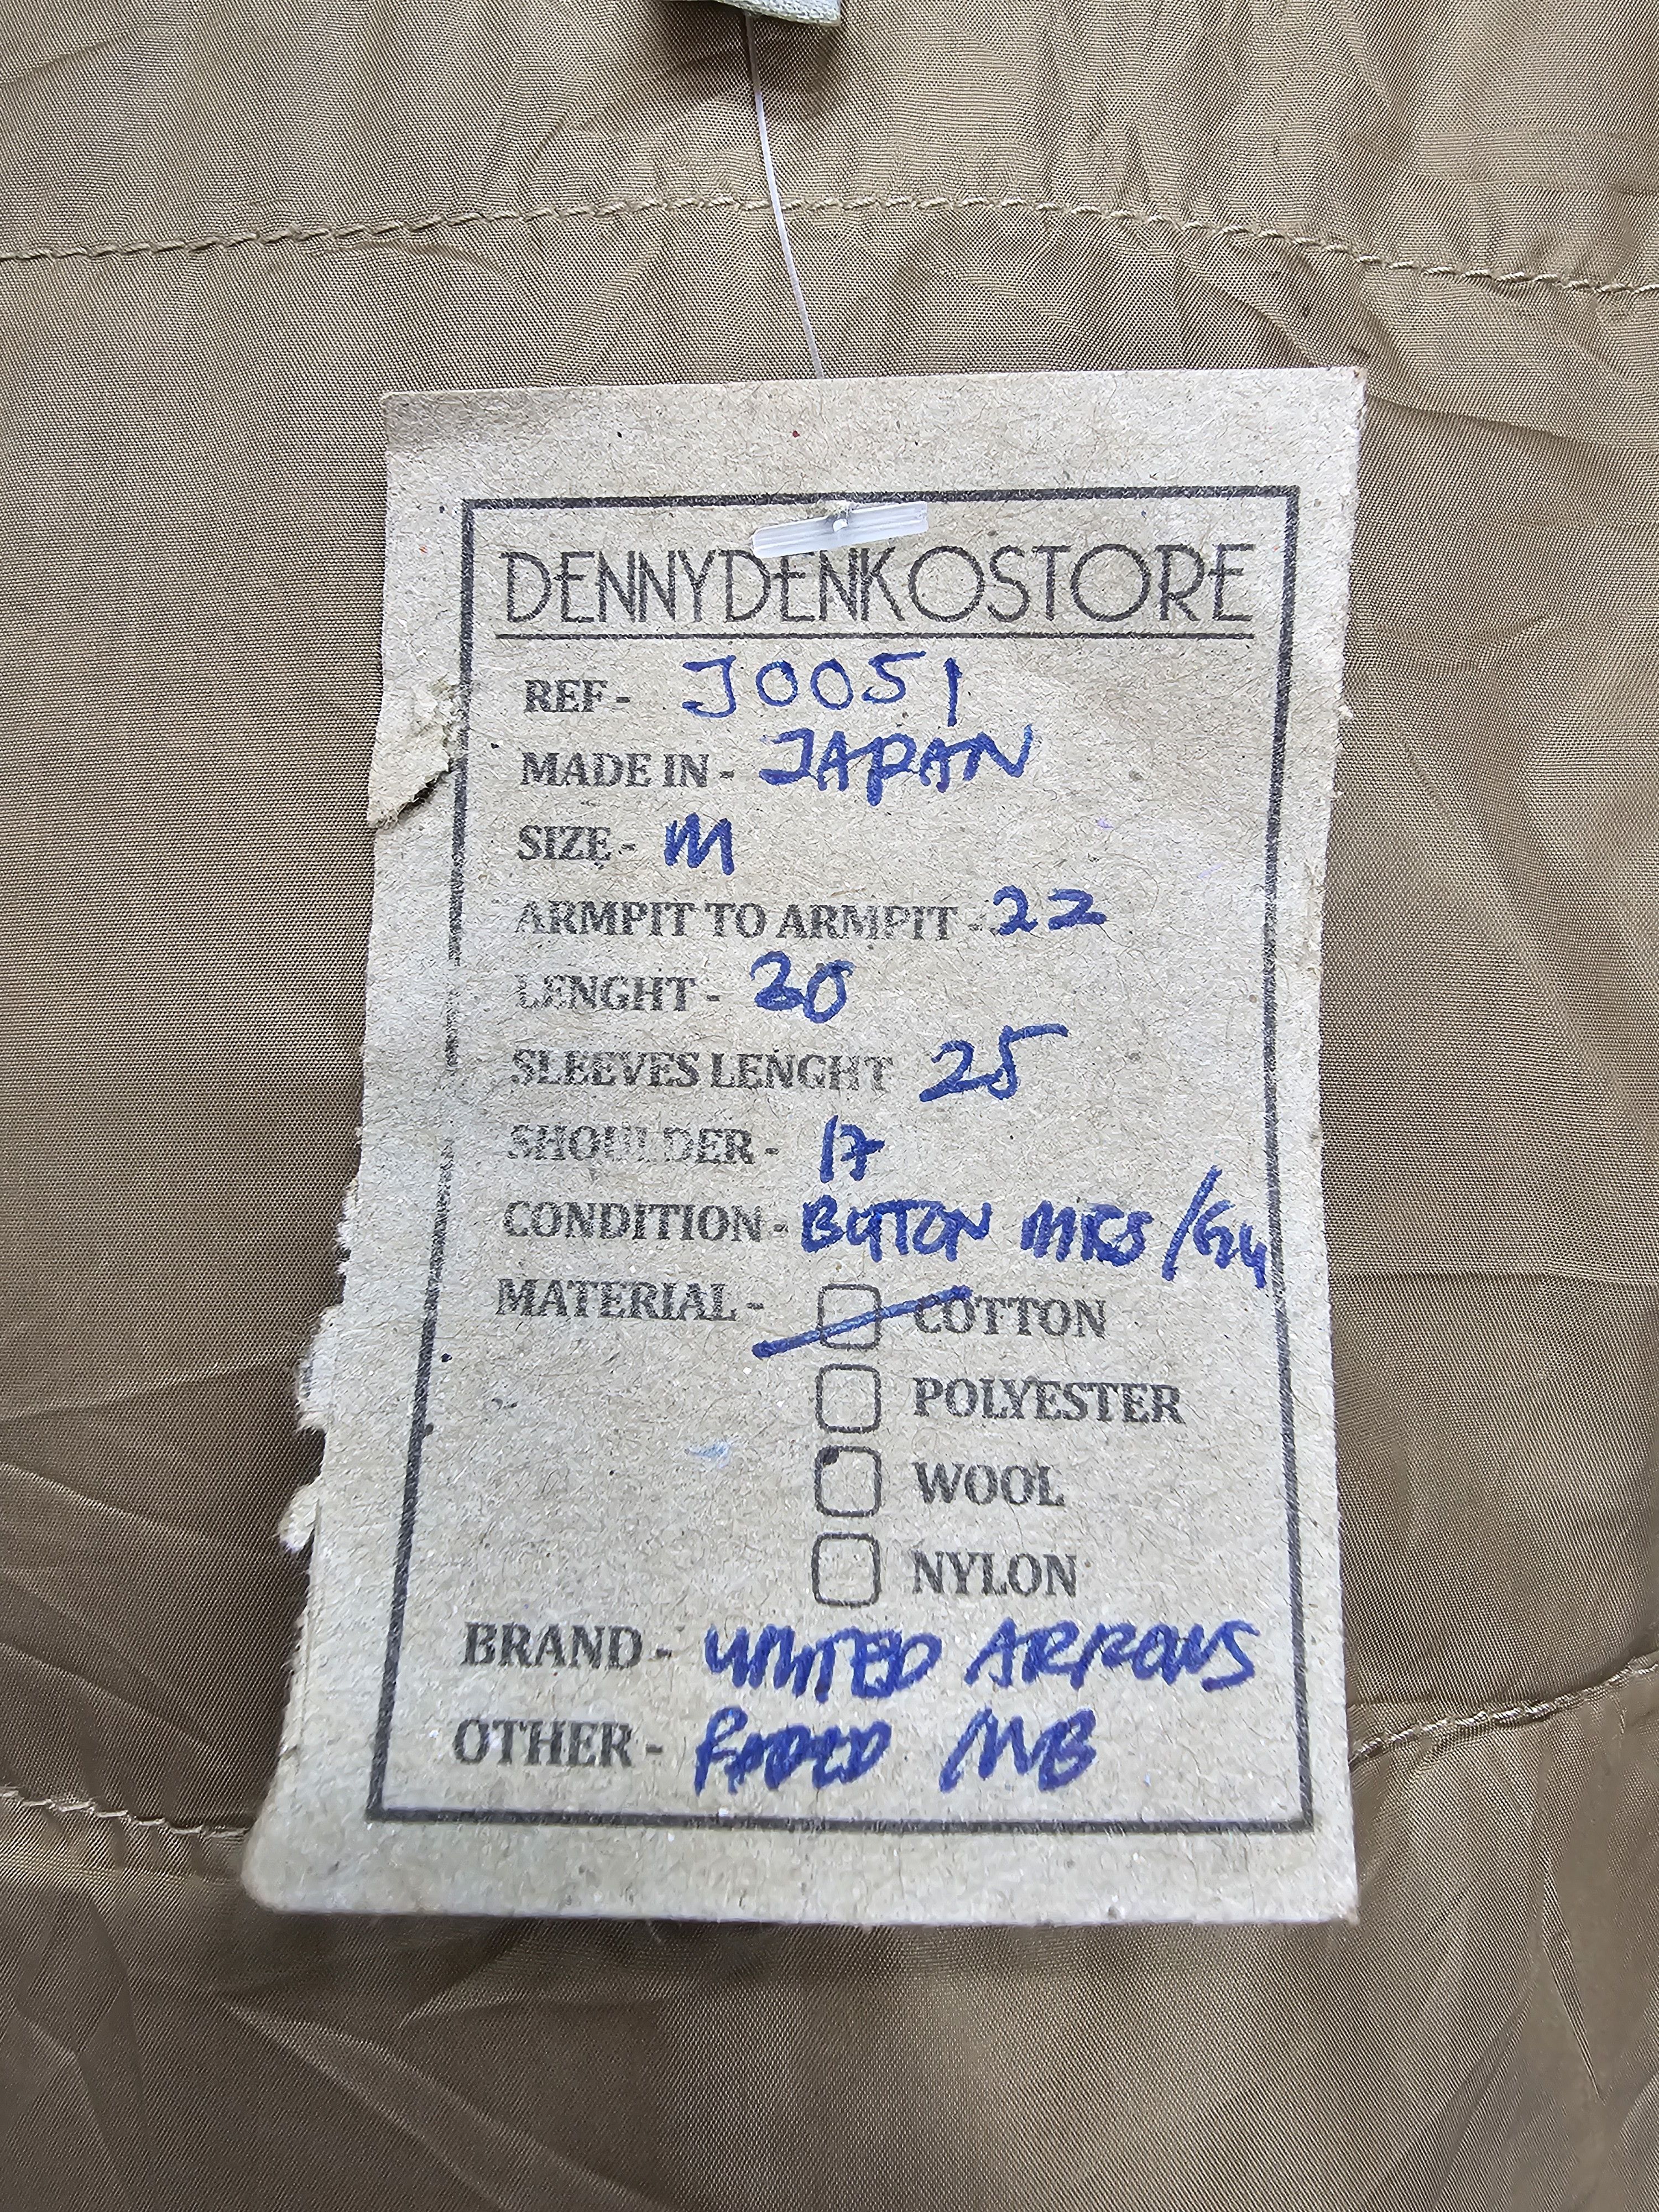 DENNYDENKOSTORE
REF - J0051
MADE IN - JAPAN
SIZE - M
ARMPIT TO ARMPIT - 22
LENGHT -
SLEEVES LENGHT 25
SHOULDER - 17
CONDITION - BUTTON
MATERIAL - COTTON
POLYESTER
WOOL
NYLON
BRAND - UNITED ARROWS
OTHER - FADED